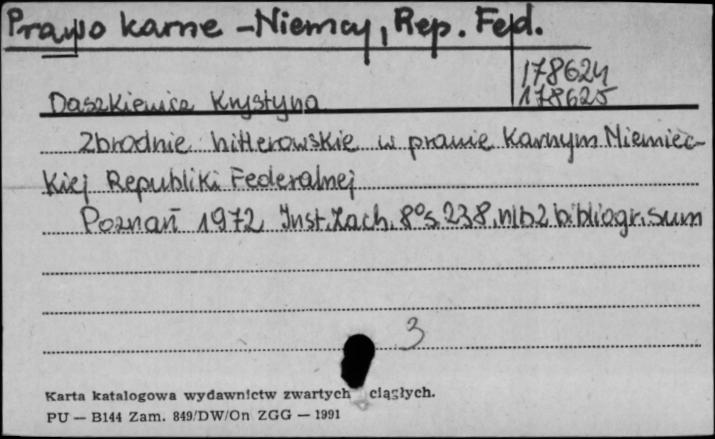 Prawo karne - Niemcy, Rep. Fed.
178624
178625
Daszkiewicz Krystyna
Zbrodnie hitlerowskie w prawie karnym Niemiec-
kiej Republiki Federalnej
Poznań 1972, Inst. Zach. 8° s. 238, nlb 2 bibliogr. sum
3
Karta katalogowa wydawnictw zwartych ciągłych.
PU — B144 Zam. 849/DW/On ZGG — 1991